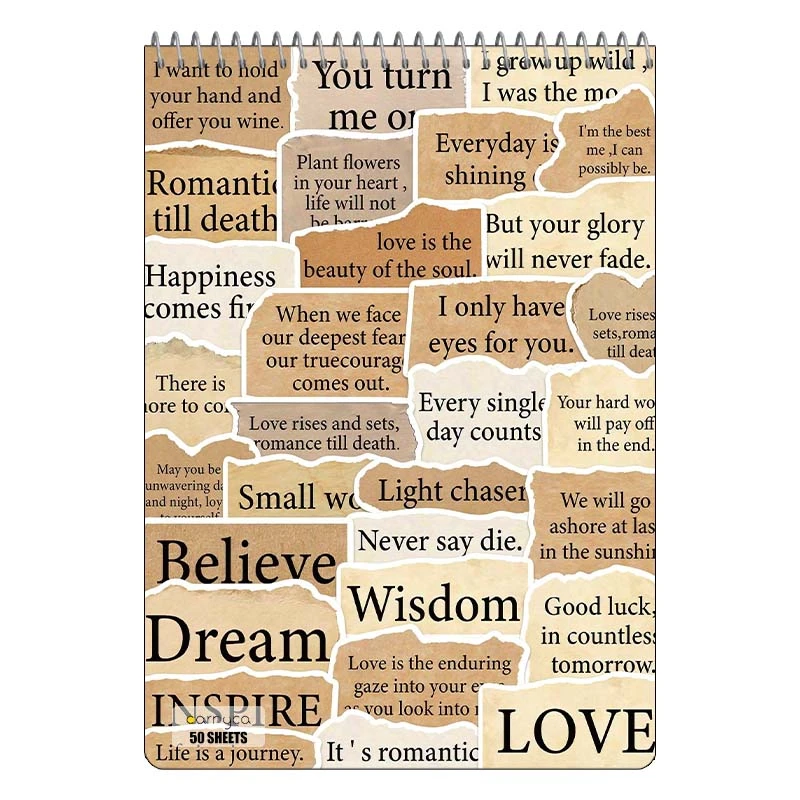 I want to hold
your hand and
offer you wine.
You turn
me on
I grew up wild ,
I was the mo
Everyday is
shining
I'm the best
me ,I can
possibly be.
Romantic
till death
Plant flowers
in your heart ,
life will not
be barr
love is the
beauty of the soul.
But your glory
will never fade.
Happiness
comes fir
When we face
our deepest fear
our truecourag
comes out.
I only have
eyes for you.
Love rises
sets,roma
till deat
There is
more to co
Love rises and sets,
romance till death.
Every single
day counts
Your hard wo
will pay off
in the end.
May you be
unwavering da
and night, loy
to yourself
Small wo
Light chaser
We will go
ashore at las
in the sunshin
Never say die.
Believe
Wisdom
Good luck,
in countless
tomorrow.
Dream
Love is the enduring
gaze into your eye
as you look into
INSPIRE
darnyca
50 SHEETS
Life is a journey.
It ' s romantic
LOVE